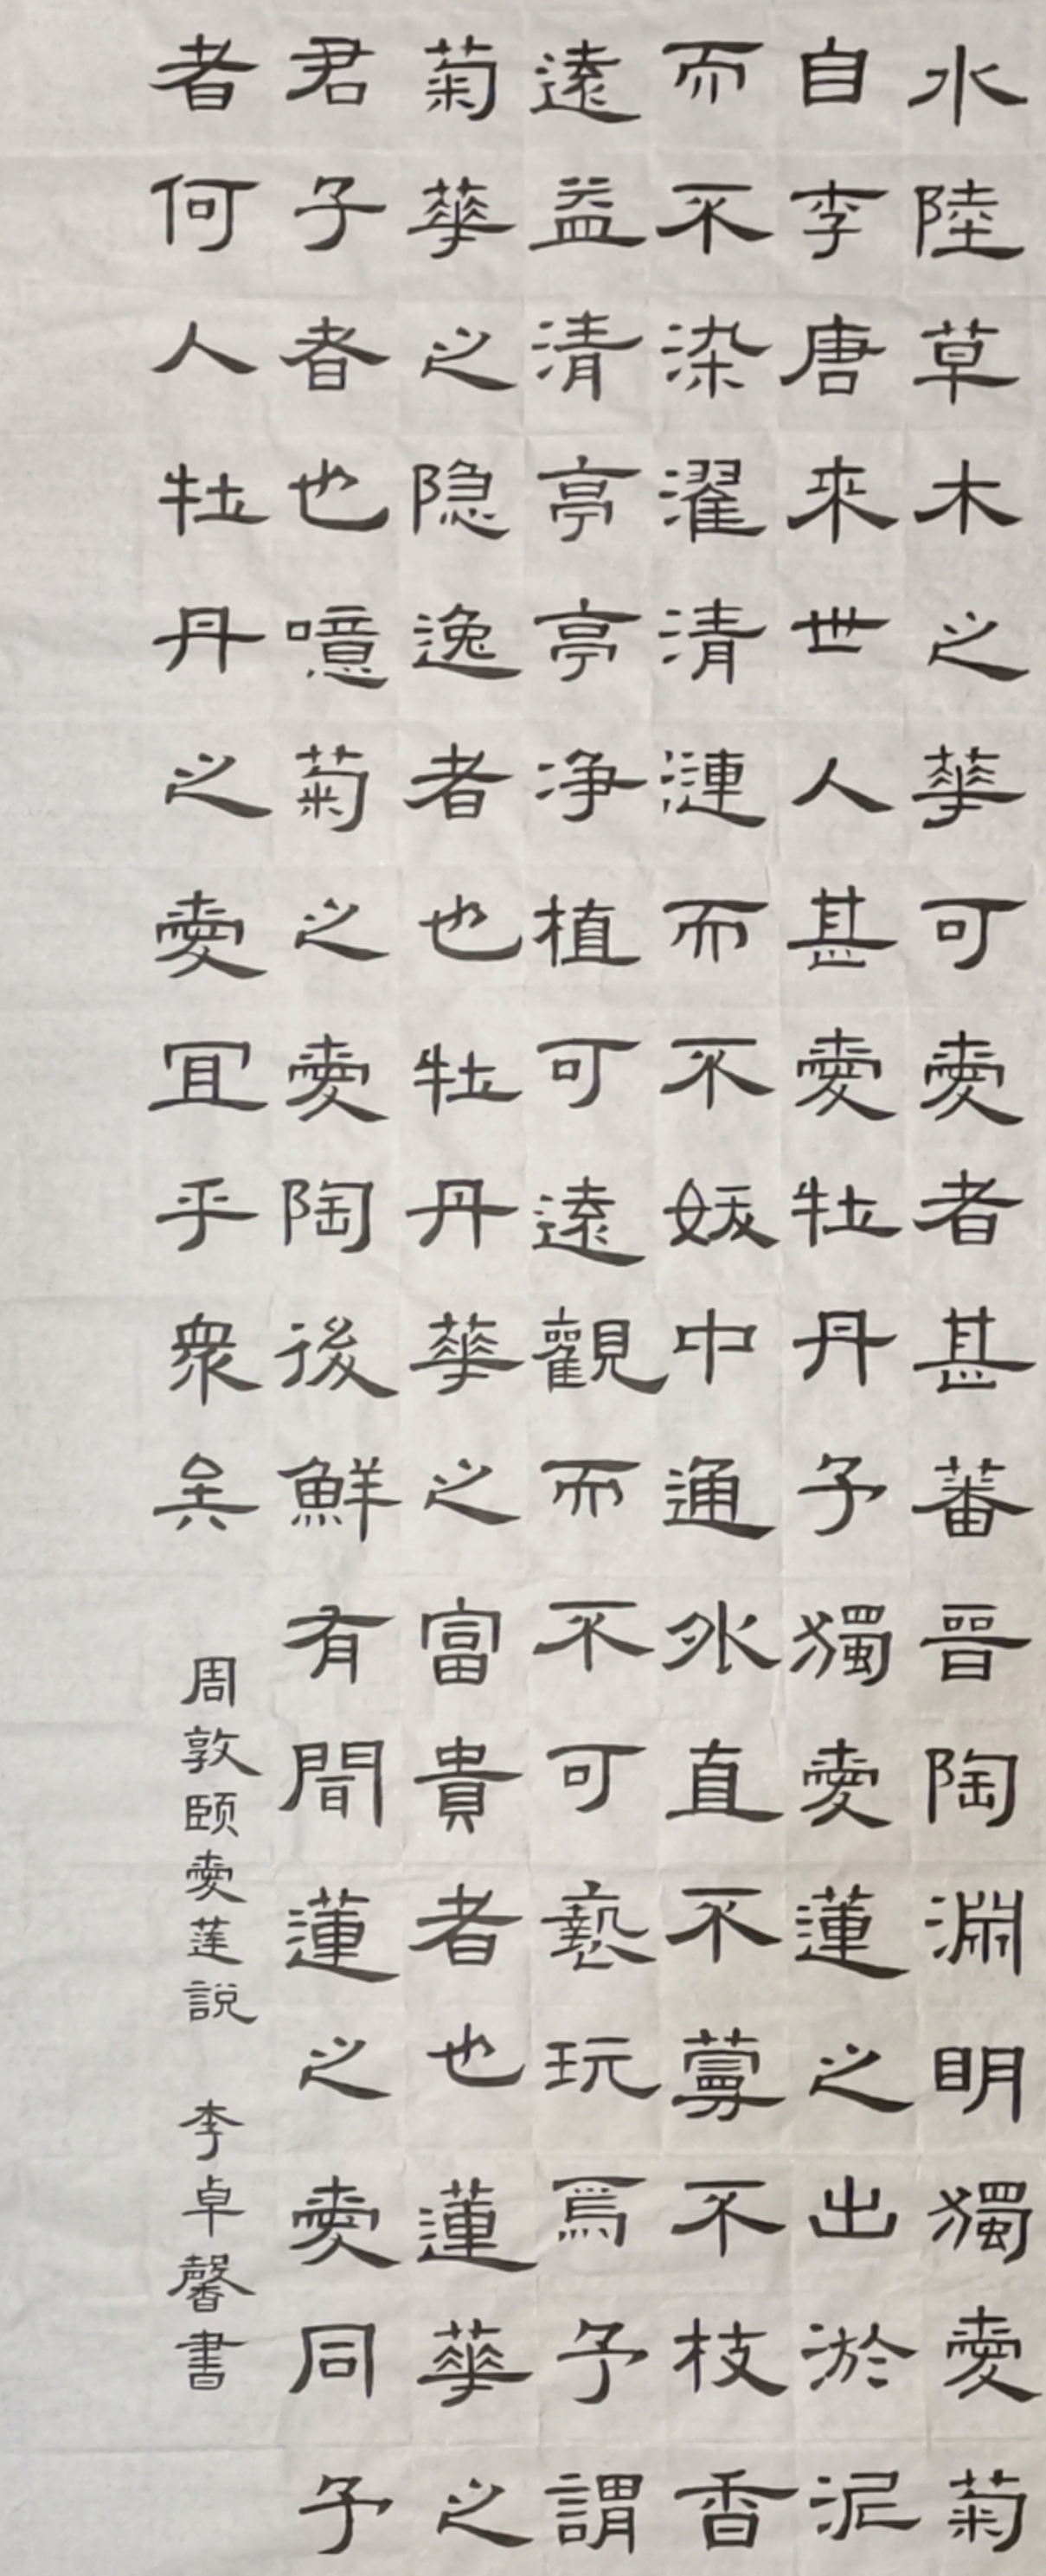 水陸草木之華可愛者甚蕃晉陶淵明獨愛菊
自李唐來世人甚愛牡丹予獨愛蓮之出淤泥
而不染濯清漣而不妖中通外直不蔓不枝香
遠益清亭亭净植可遠觀而不可褻玩焉予謂
菊華之隐逸者也牡丹華之富貴者也蓮華之
君子者也噫菊之愛陶後鮮有聞蓮之愛同予
者何人牡丹之愛冝乎衆矣
周敦颐愛莲説 李卓馨書